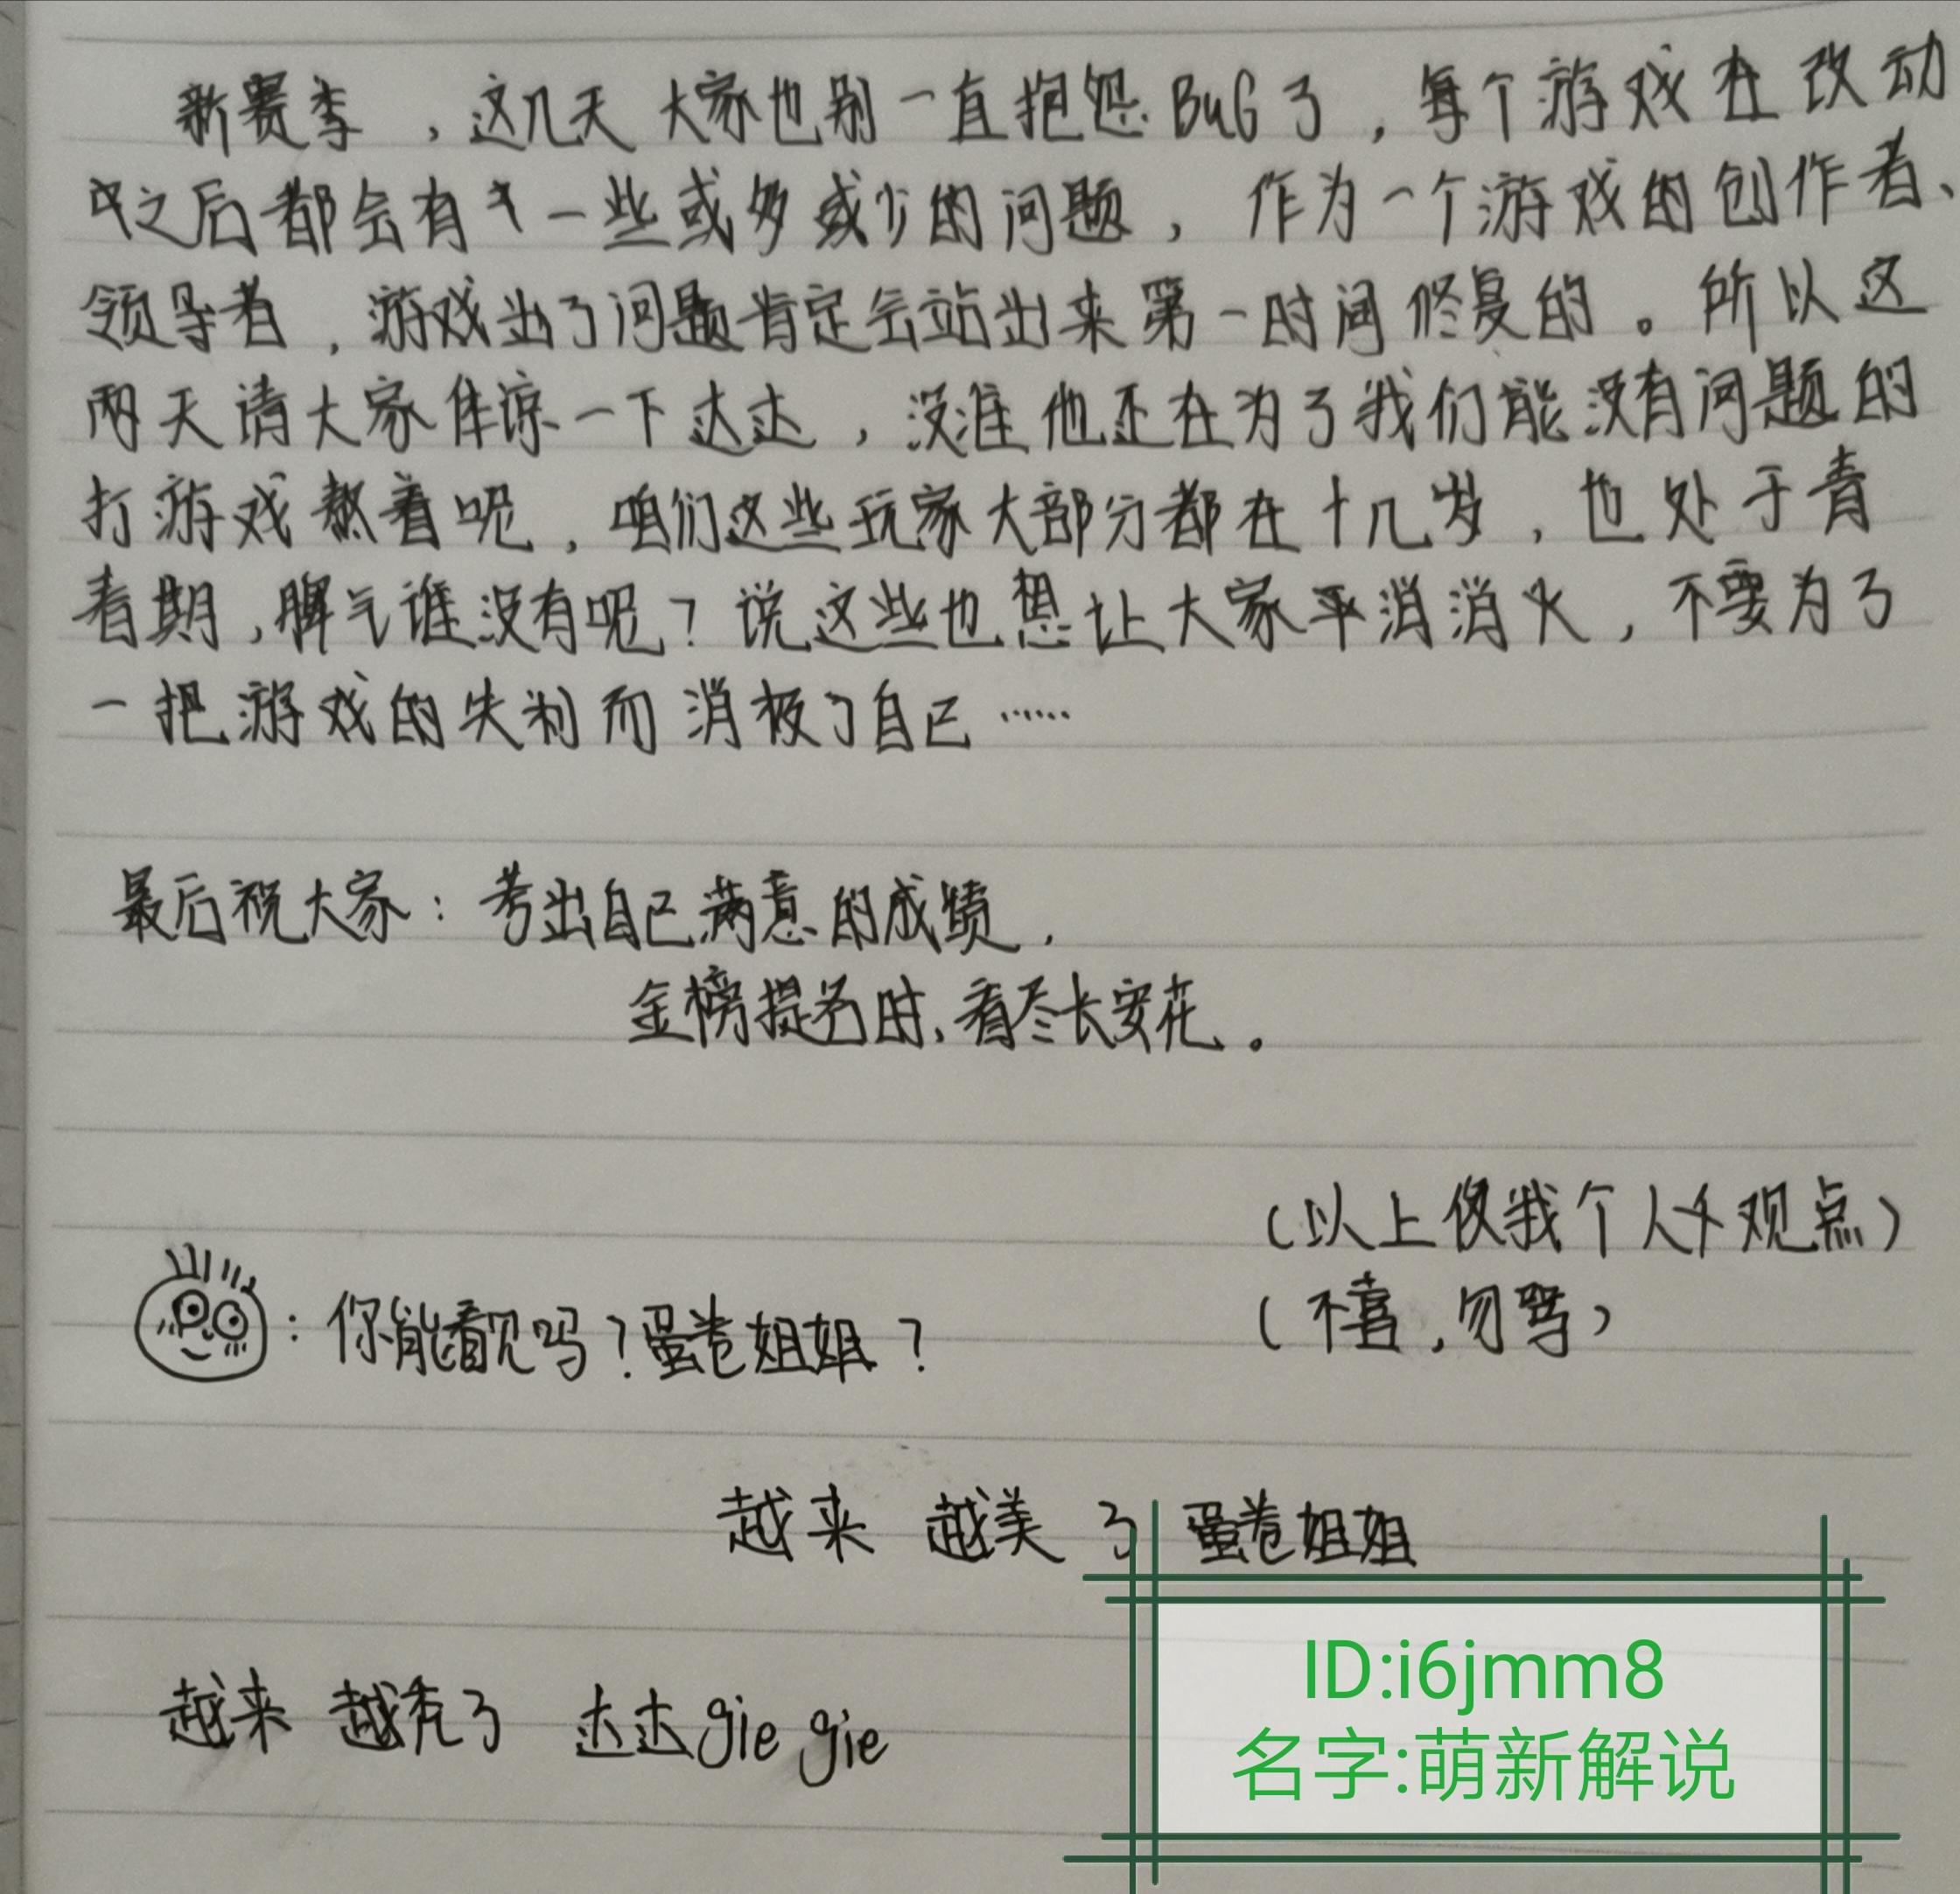 新赛季，这几天大家也别一直抱怨BuG了，每个游戏在改动
之后都会有一些或多或少的问题，作为一个游戏的创作者、
领导者，游戏出了问题肯定会站出来第一时间修复的。所以这
两天请大家体谅一下达达，没准他正在为了我们能没有问题的
打游戏熬着呢，咱们这些玩家大部分都在十几岁，也处于青
春期，脾气谁没有呢？说这些也想让大家平消消火，不要为了
一把游戏的失利而消极了自己……
最后祝大家：考出自己满意的成绩，
金榜提名时，看尽长安花。
（以上仅我个人观点）
（不喜，勿骂）
：你能看见吗？蛋卷姐姐？
越来 越美 了 蛋卷姐姐
越来 越秃了 达达gie gie
ID:i6jmm8
名字:萌新解说